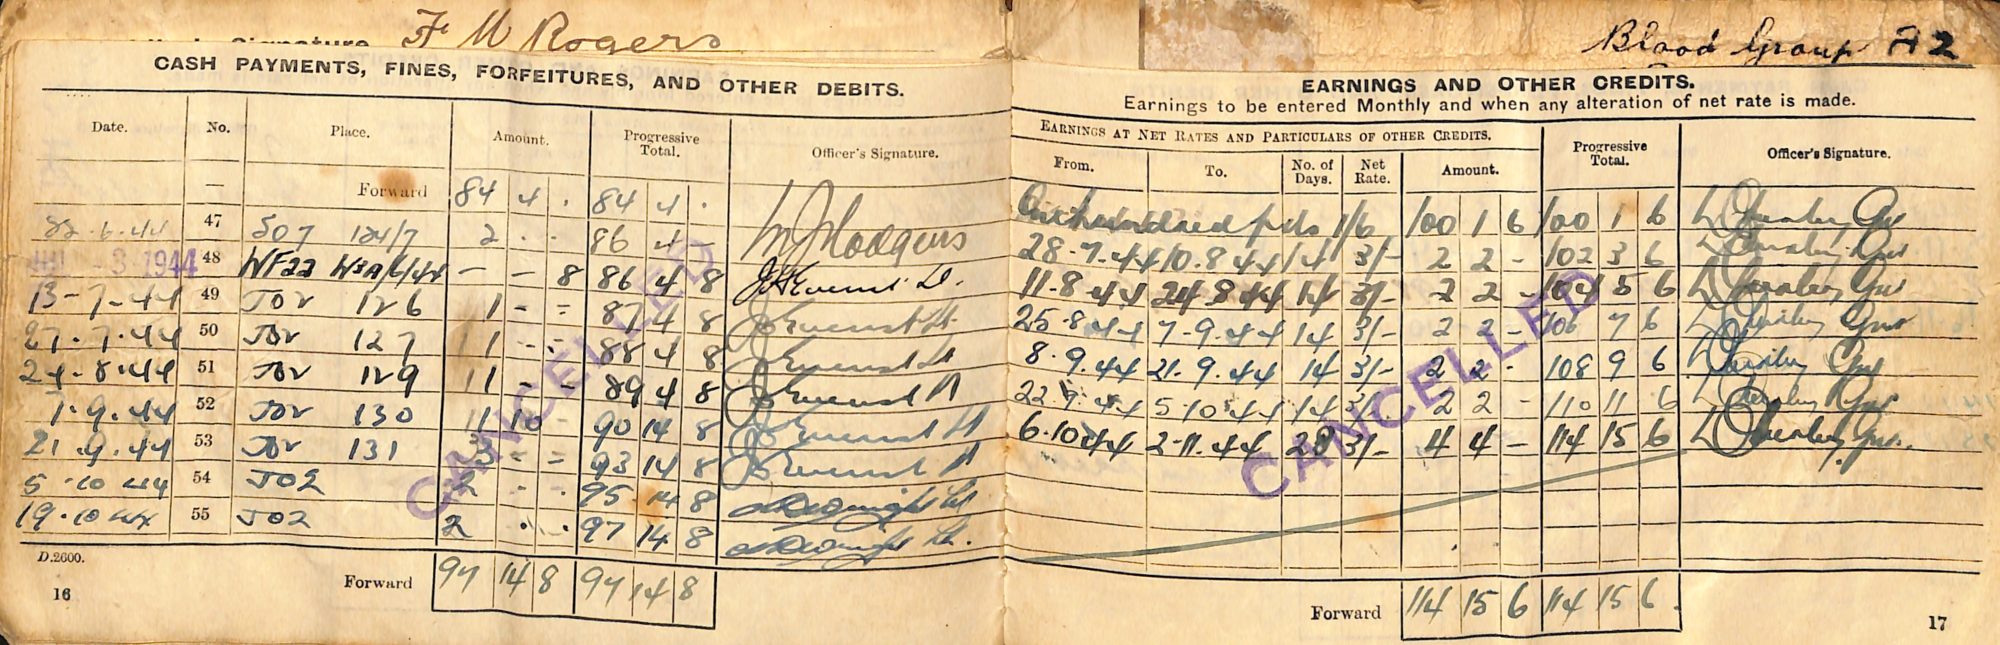 F M Rogers
Blood Group A2
CASH PAYMENTS, FINES, FORFEITURES, AND OTHER DEBITS.
Date. No. Place. Amount. Progressive Total. Officer's Signature.
— Forward 84 4 . 84 4 .
22.6.44 47 507 124/7 2 . . 86 4 -
JUL -3 1944 48 WF22 — — 8 86 4 8
13-7-44 49 126 1 - - 87 4 8
27.7.44 50 127 1 - - 88 4 8
24-8-44 51 129 1 - - 89 4 8
7.9.44 52 130 1 10 - 90 14 8
21.9.44 53 131 3 - - 93 14 8
5-10 44 54 JO2 2 - - 95 14 8
19.10 44 55 JO2 2 . . 97 14 8
D.2600.
Forward 97 14 8 97 14 8
16
EARNINGS AND OTHER CREDITS.
Earnings to be entered Monthly and when any alteration of net rate is made.
EARNINGS AT NET RATES AND PARTICULARS OF OTHER CREDITS.
From. To. No. of Days. Net Rate. Amount. Progressive Total. Officer's Signature.
1/6 100 1 6 100 1 6
28-7-44 10.8 44 14 3/- 2 2 - 102 3 6
11-8 44 24 8 44 14 3/- 2 2 - 104 5 6
25-8-44 7-9.44 14 3/- 2 2 - 106 7 6
8.9.44 21.9.44 14 3/- 2 2 - 108 9 6
22 9.44 5 10 44 14 3/- 2 2 - 110 11 6
6.10 44 2-11.44 28 3/- 4 4 - 114 15 6
Forward 114 15 6 114 15 6
17
CANCELLED
CANCELLED